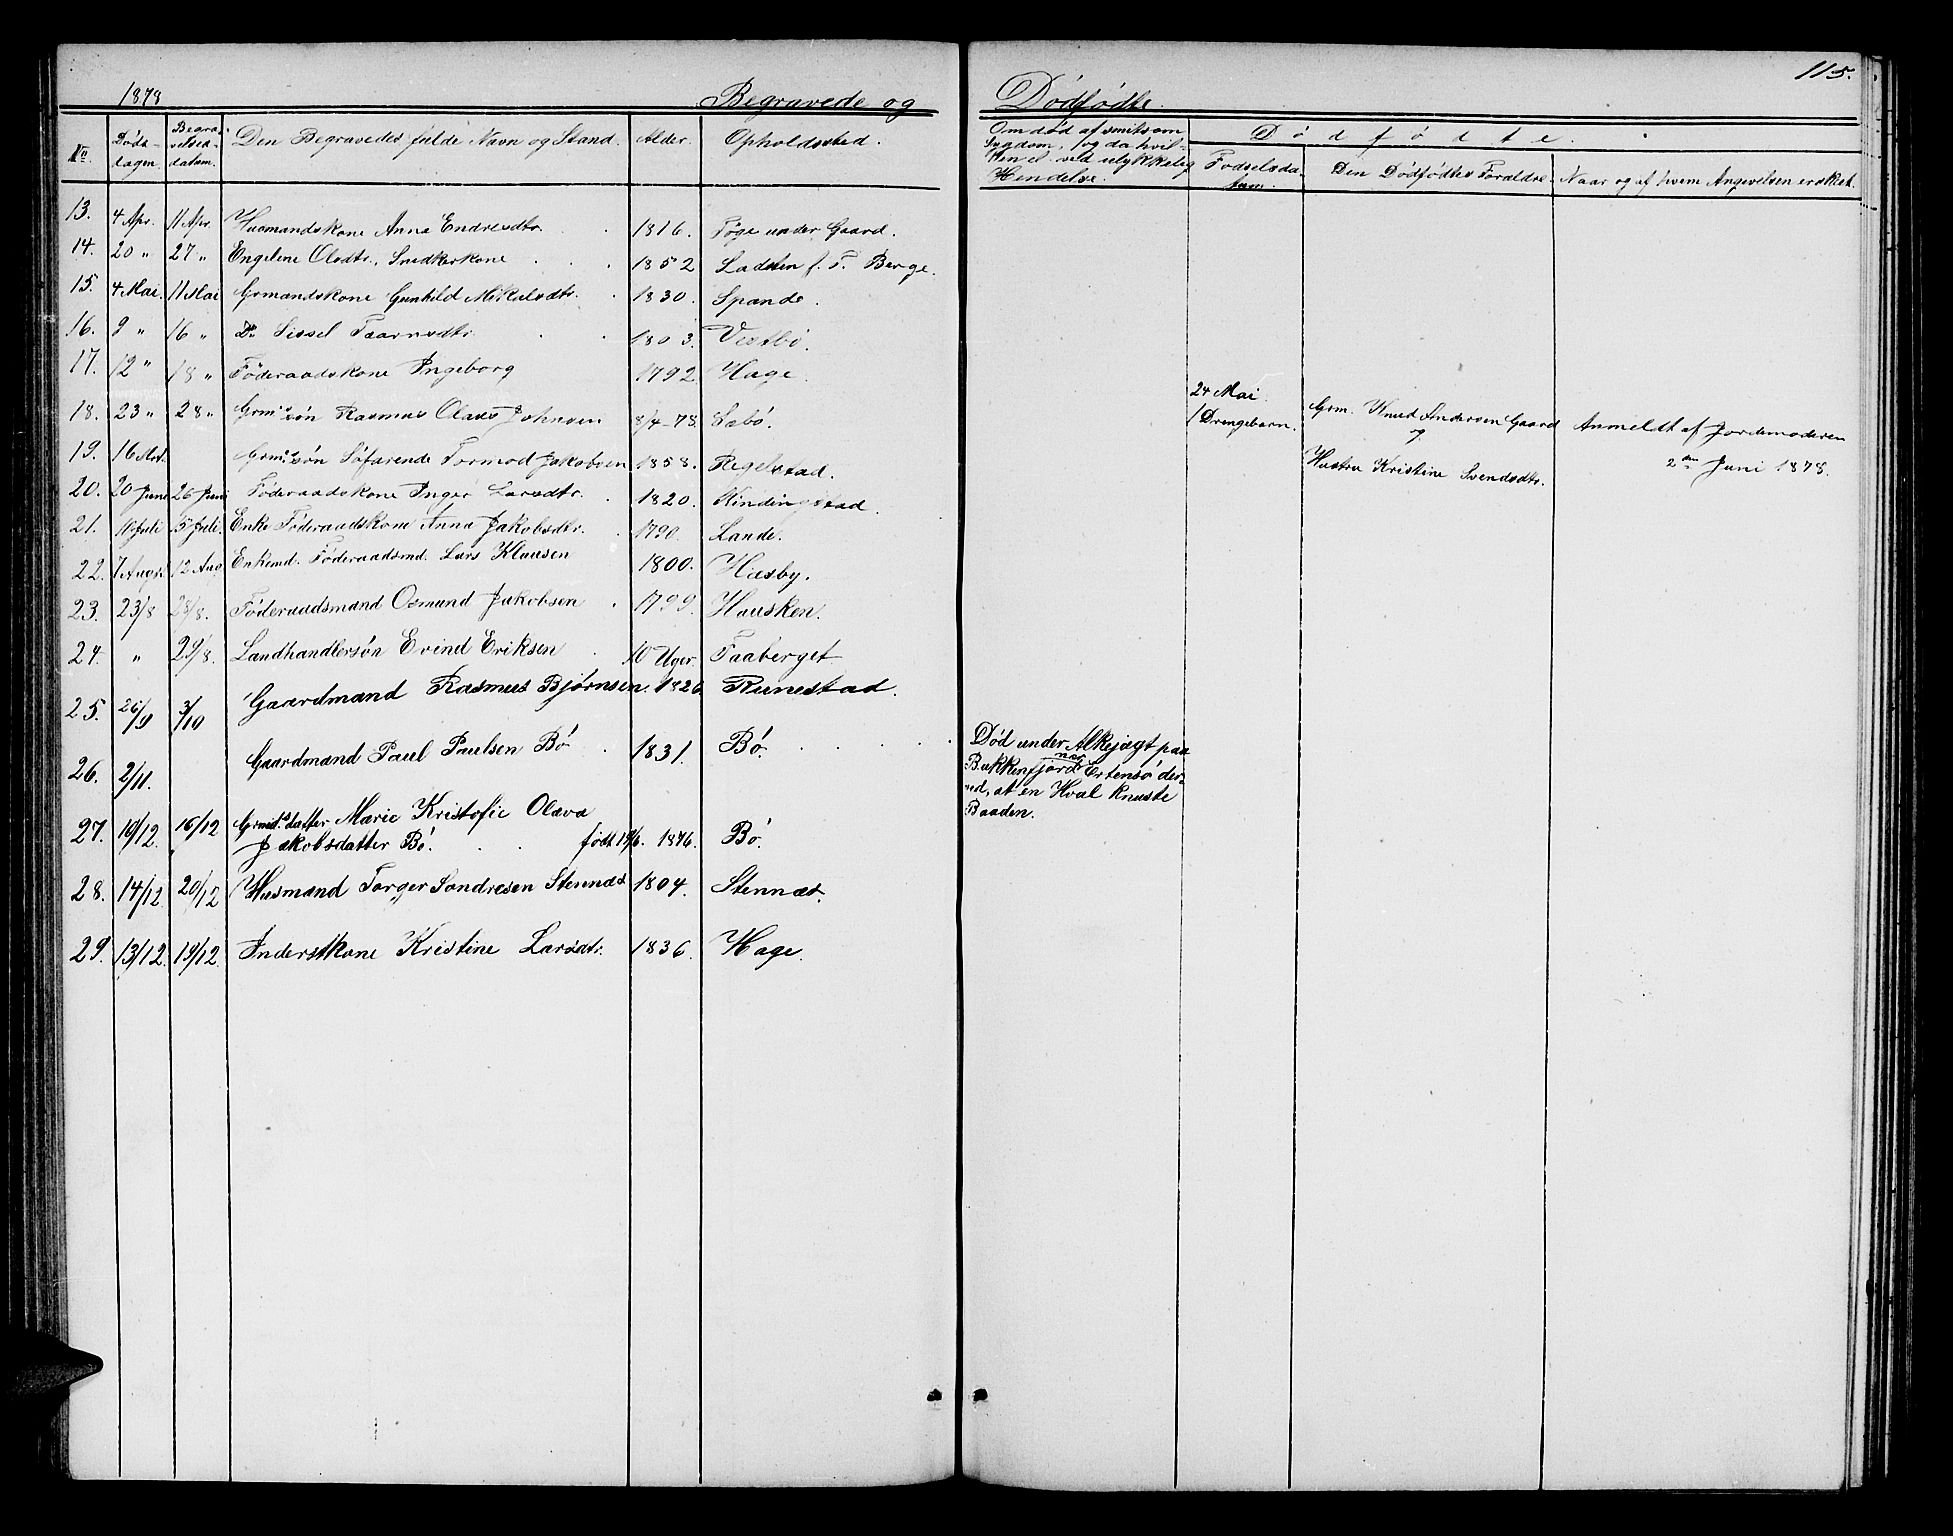 1878
Begravede og
Dødfødte
115.
No
Døds-
dagen.
Begra-
velses-
datum.
Den Begravedes fulde Navn og Stand.
Alder.
Opholdssted.
Om død af smitsom
Sygdom, og da hvil-
ken el. ved ulykkelig
Hendelse.
Dødfødte.
Fødselsda-
tum.
Den Dødfødtes Forældre.
Naar og af hvem Angivelsen er skeet.
13. 4 Apr. 11 Apr. Husmandskone Anna Endresdtr. 1816. Tøge under Gaard.
14. 20 " 27 " Engeline Olsdtr., Snedkerkone 1852 Ladsten f. T. Berge.
15. 4 Mai. 11 Mai Grmandskone Gunhild Mikalsdtr. 1830. Spande.
16. 9 " 16 " Do Sissel Taarnsdtr. 1803. Vestbø.
17. 12 " 18 " Föderaadskone Ingeborg 1792. Hage.
18. 23 " 28 " Grm.s søn Rasmus Olaus Johnsen 8/4-78. Sebø.
24 Mai.
1 Drengebarn.
Grm. Knud Andersen Gaard
og
Hustru Kristine Svendsdtr.
Anmeldt af Jordemoderen
2den Juni 1878.
19. 16 Grm.s søn Söfarende Tormod Jakobsen 1858. Regelstad.
20. 20 Juni 26 Juni Föderaadskone Inger Larsdtr. 1820. Kindingstad.
21. Juli 5 Juli. Enke Föderaadskone Anna Jakobsdtr. 1790. Lande.
22. 7 August 12 Aug Enkemd. Föderaadsmd. Lars Klausen 1800. Hæsby.
23. 23/8 28/8. Föderaadsmand Osmund Jakobsen 1799. Hausken.
24. " 29/8. Landhandlersøn Evind Eriksen 10 Uger. Faaberget
25. 26/9 3/10 Gaardmand Rasmus Bjørnsen. 1826 Runestad.
26. 2/11. Gaardmand Paul Paulsen Bø 1831. Bø.
Død under Alkejagt paa
Bukkenfjord nær Ertensø der-
ved, at en Hval knuste
Baaden.
27. 10/12. 16/12 Grmds datter Marie Kristofie Olava
Jakobsdatter Bø. født 19/6. 1876. Bø.
28. 14/12 20/12 Husmand Torger Sondresen Stennæs 1804. Stennæs.
29. 13/12. 19/12. Inderstkone Kristine Larsdtr. 1836. Hage.